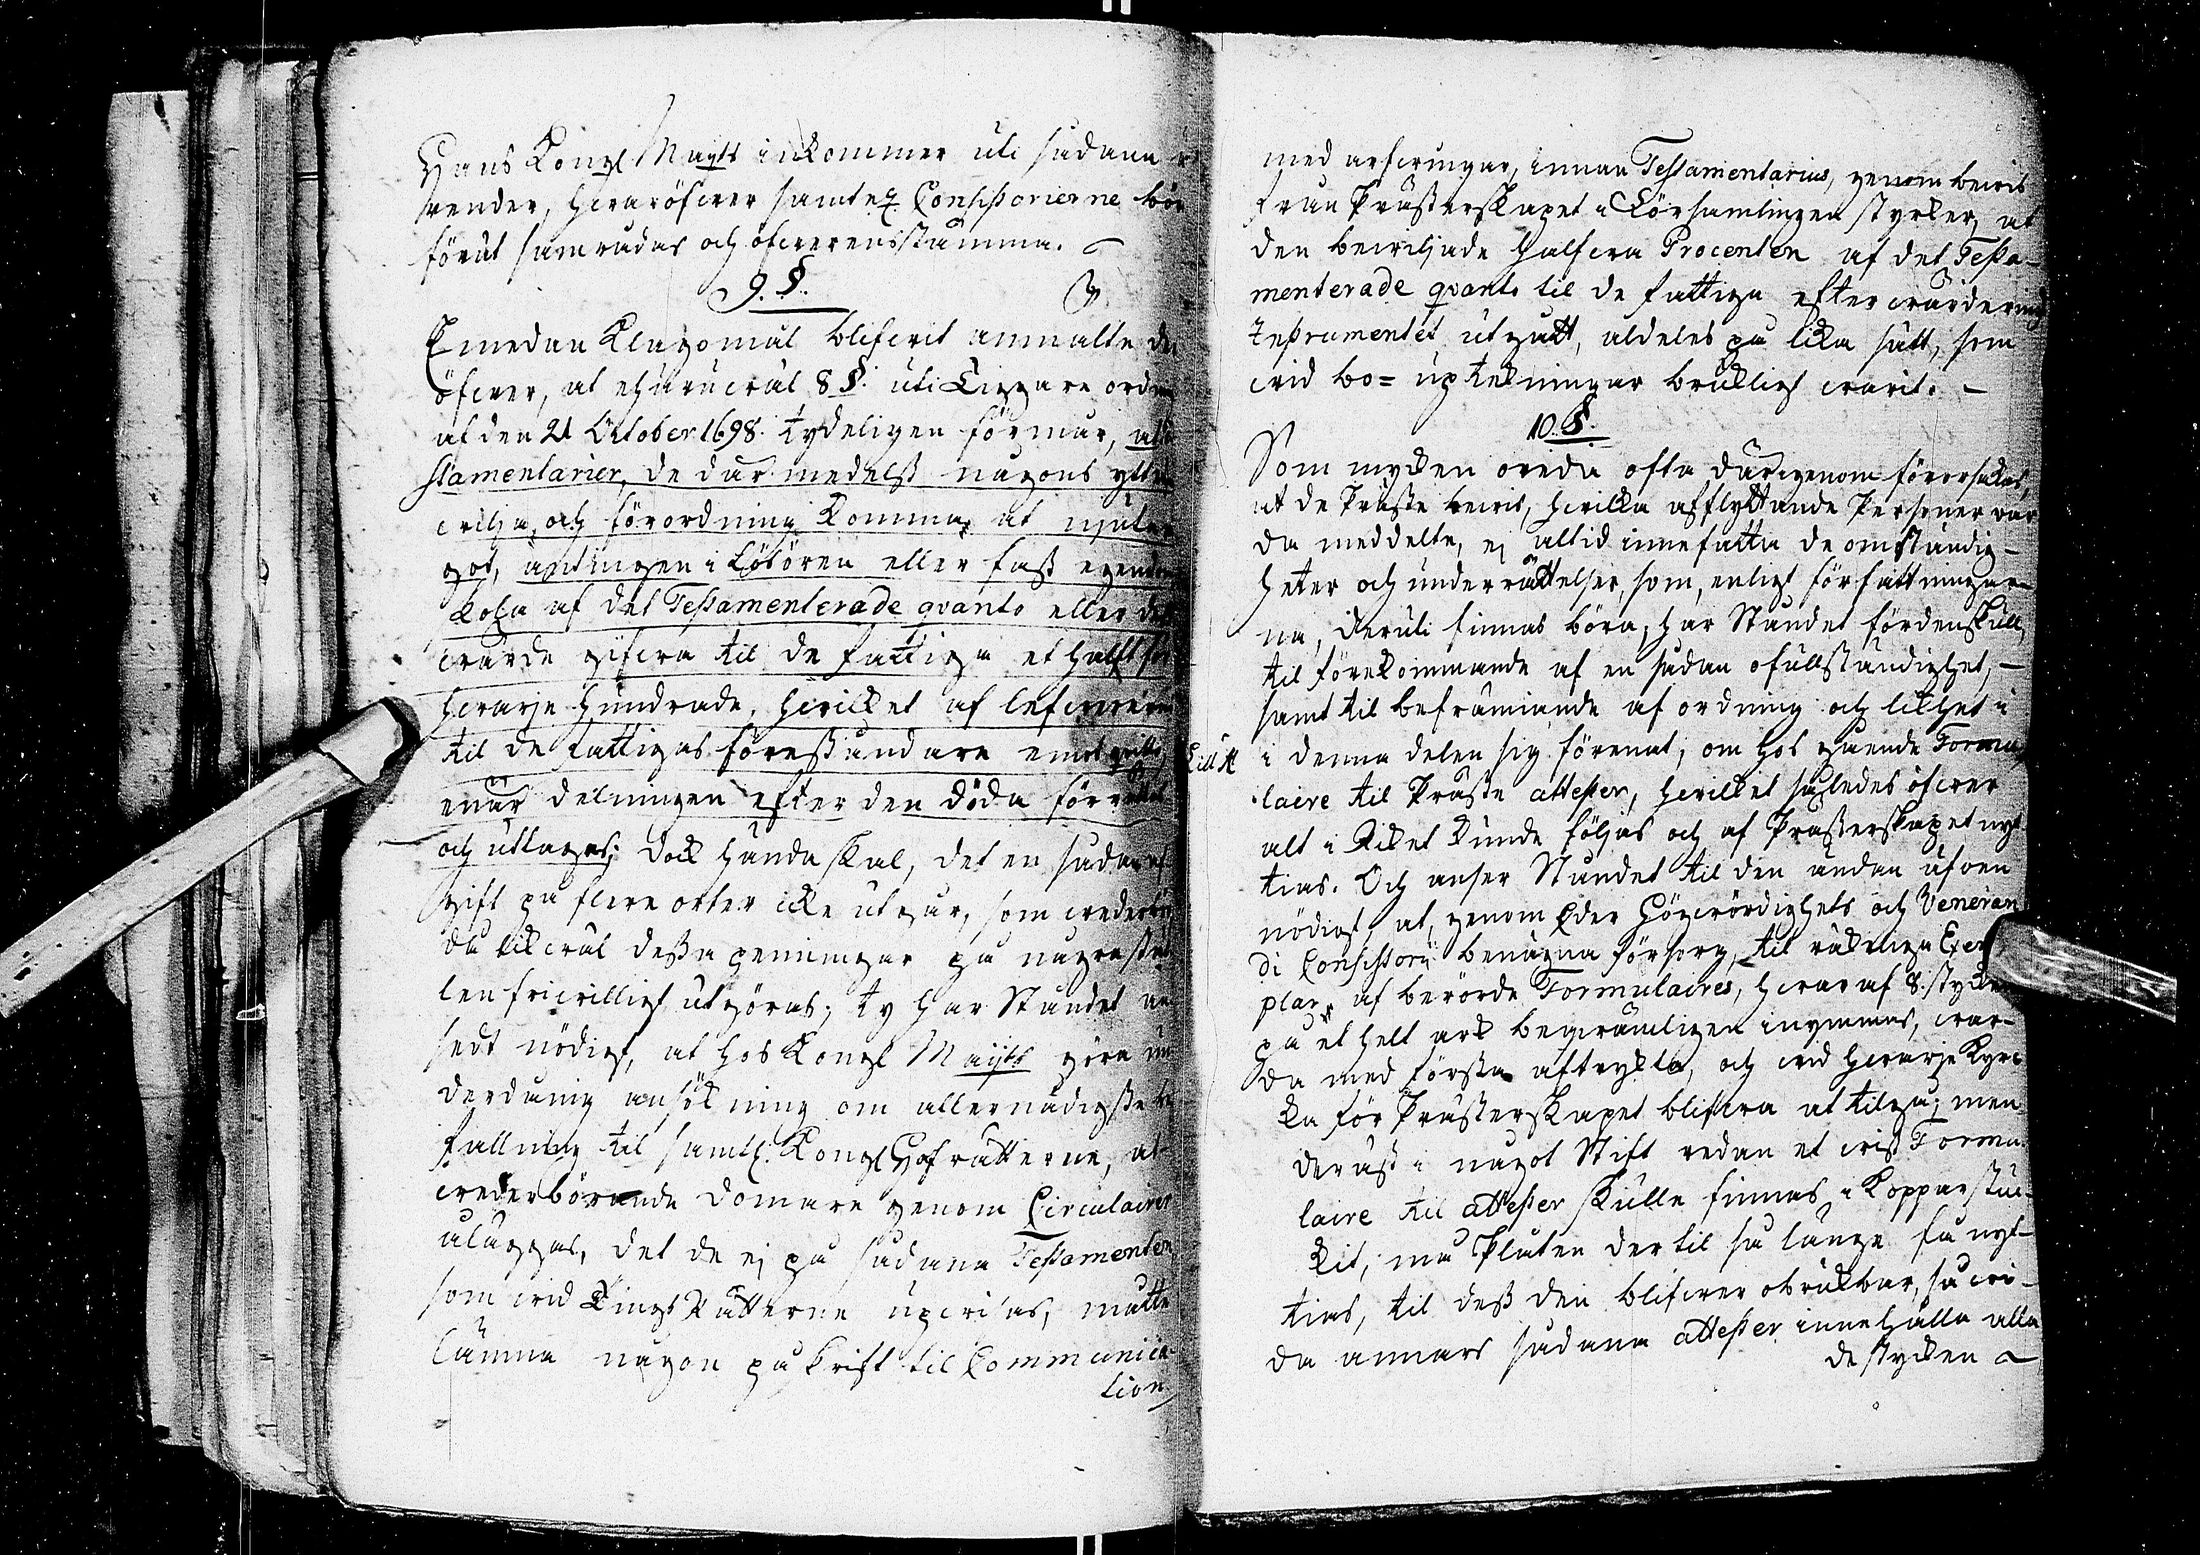 Hans Kongl Mayts inkommer uti sådana
ender, hvaröfver samtel. Consistorierne bör
förut samrådas och öfverensstämma.
9. §.
Emedan klagomål blifvit anmälte der
öfver, at ehuruväl 8 §. uti Tiggare ordn
af den 21 October 1698. tydeligen förmår, at
stamentarier, de där medelst någons ytter
vilja och förordning komma at njuta
got, äntingen i Lösören eller fast egendom
skola af det Testamenterade qvanto eller des
värde gifva til de fattiga et halft för
hvarje hundrade, hvilket af lefvere
til de fattigas föreståndare emot qvitto
enär delningen efter den döda förrättas
och uttages; dock hända skal, det en sådan af
gift på flera orter icke utgår, som vederbör
då likväl dessa penningar på några stäl
len frivilligt utgöras; ty har Ståndet an
sedt nödigt, at hos Kongl Mayts göra un
derdånig ansökning om allernådigste be
fallning til samtl. Kongl Hofrätterne, at
vederbörande domare genom Circulairer
aläggas, det de ej på sådana Testamenten
som vid Tings Rätterne upvisas, måtte
lämna någon påskrift til Communica
tion
med arfvingar, innan Testamentarius, genom bevis
från Prästerskapet i Församlingen styrker, at
den beviljade halfva Procenten af det Testa-
menterade qvanto til de fattiga efter värdering
Instrumentet utgått, aldeles på lika sätt, som
vid bo= uptekningar brukligt varit.
10. §.
Som mycken oreda ofta därigenom förorsakas,
at de Präste bevis, hvilka afflyttande Personer var
da meddelte, ej altid innefatta de omständig-
heter och underrättelser, som, enligt författningar-
na, deruti finnas böra; har Ståndet fördenskull,
til förekommande af en sådan ofullständighet,
samt til befrämiande af ordning och likhet i
Litt A i denna delen sig förenat, om hos gående Formu-
laire til Präste attester, hvilket således öfver
alt i Riket kunde följas och af Prästerskapet nyt
tias. Och anser Ståndet til den ändan äfven
nödigt at, genom Eder Högvördighets och Veneran
di Consistorii benägna försorg, til räkeliga Exem
plar af berörde Formulaires, hvaraf 8. stycken
på et helt ark beqvämligen inymmas, var-
da med första aftrykta, och vid hvarje Kyr-
ka för Prästerskapet blifva at tilgå; men
derast i något Stift redan et vist Formu
laire til attester skulle finnas i Kopparstuc-
kit, må Pläten dertil så länge få nyt-
tias, til dess den blifver obrukbar, så vi-
da annars sådana attester innehålla alla
de stycken